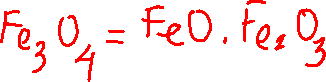 Fe₃O₄ = FeO . Fe₂O₃